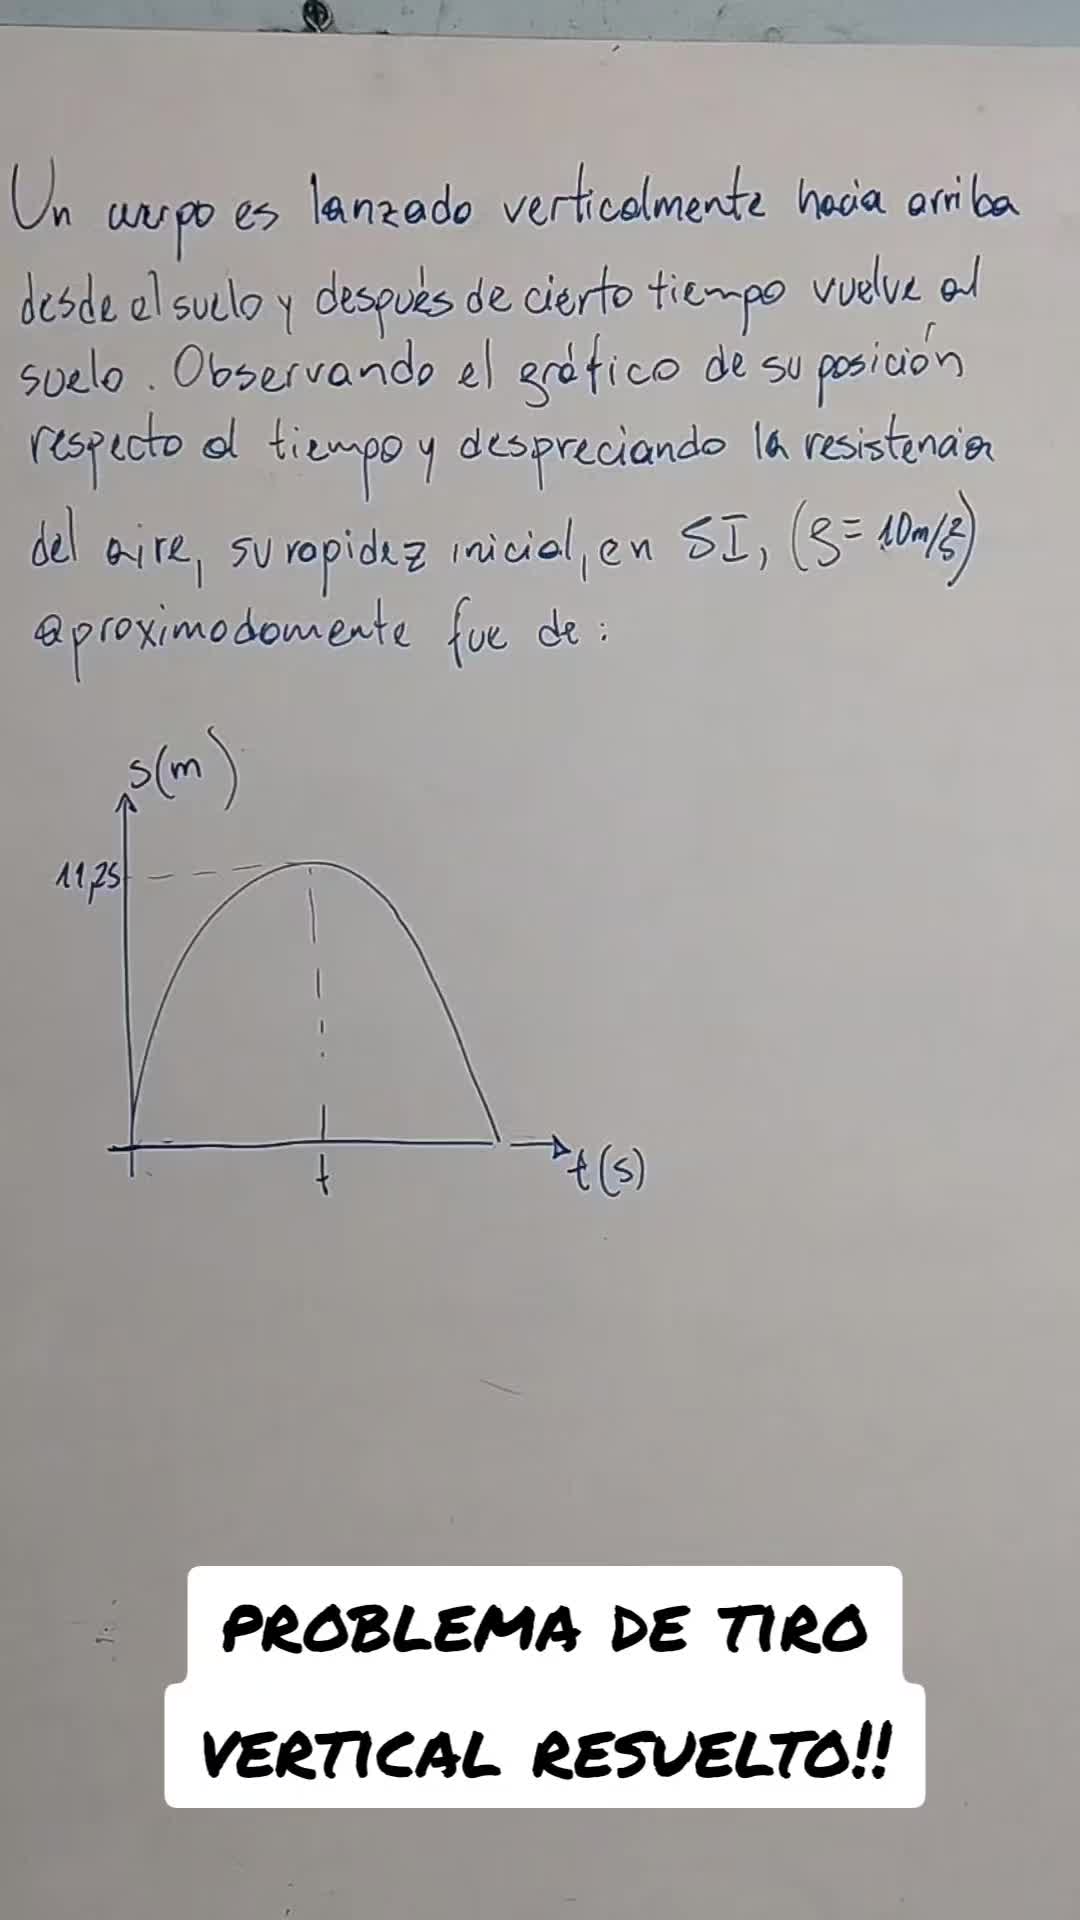 Un cuerpo es lanzado verticalmente hacia arriba
desde el suelo y después de cierto tiempo vuelve al
suelo. Observando el gráfico de su posición
respecto al tiempo y despreciando la resistencia
del aire, su rapidez inicial, en SI, (g = 10m/s²)
aproximadamente fue de:
s(m)
11,25
t
t(s)
PROBLEMA DE TIRO
VERTICAL RESUELTO!!